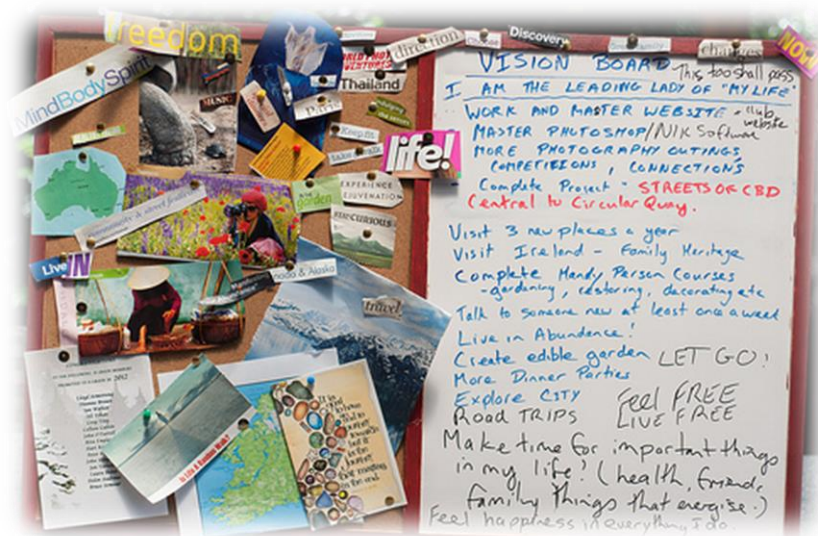 freedom
MindBodySpirit
MUSIC
Thailand
Paris
Keep fit
take a walk
life!
direction
choose
Discovery
changes
NOW
garden
EXPERIENCE
REJUVENATION
CURIOUS
community & street festivals
Live IN
Canada & Alaska
travel
2012
VISION BOARD
This too shall pass
I AM THE LEADING LADY OF "MY LIFE"
WORK AND MASTER WEBSITE - club website
MASTER PHOTOSHOP/NIK Software
MORE PHOTOGRAPHY OUTINGS
COMPETITIONS, CONNECTIONS
Complete Project - STREETS OF CBD
Central to Circular Quay.
Visit 3 new places a year
Visit Ireland - Family Heritage
Complete Handy Person Courses
- gardening, restoring, decorating etc
Talk to someone new at least once a week
Live in Abundance!
Create edible garden LET GO!
More Dinner Parties
Explore CITY
Feel FREE
ROAD TRIPS
LIVE FREE
Make time for important things
in my life! (health, friends,
family things that energise.)
Feel happiness in everything I do.